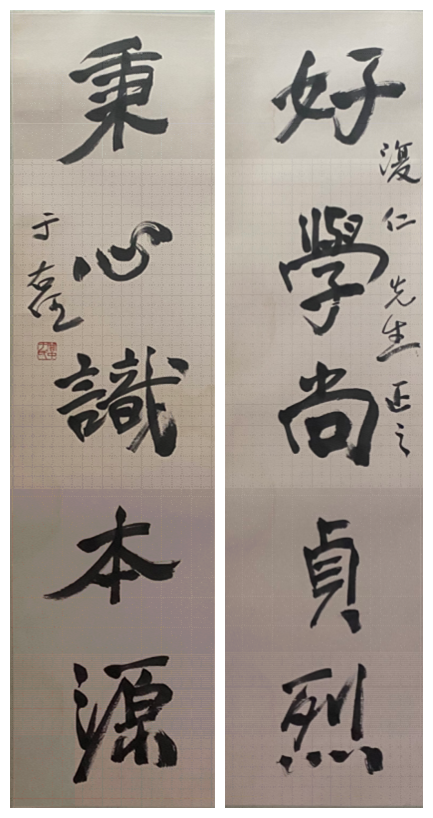 好學尚貞烈
復仁先生正之
秉心識本源
于右任